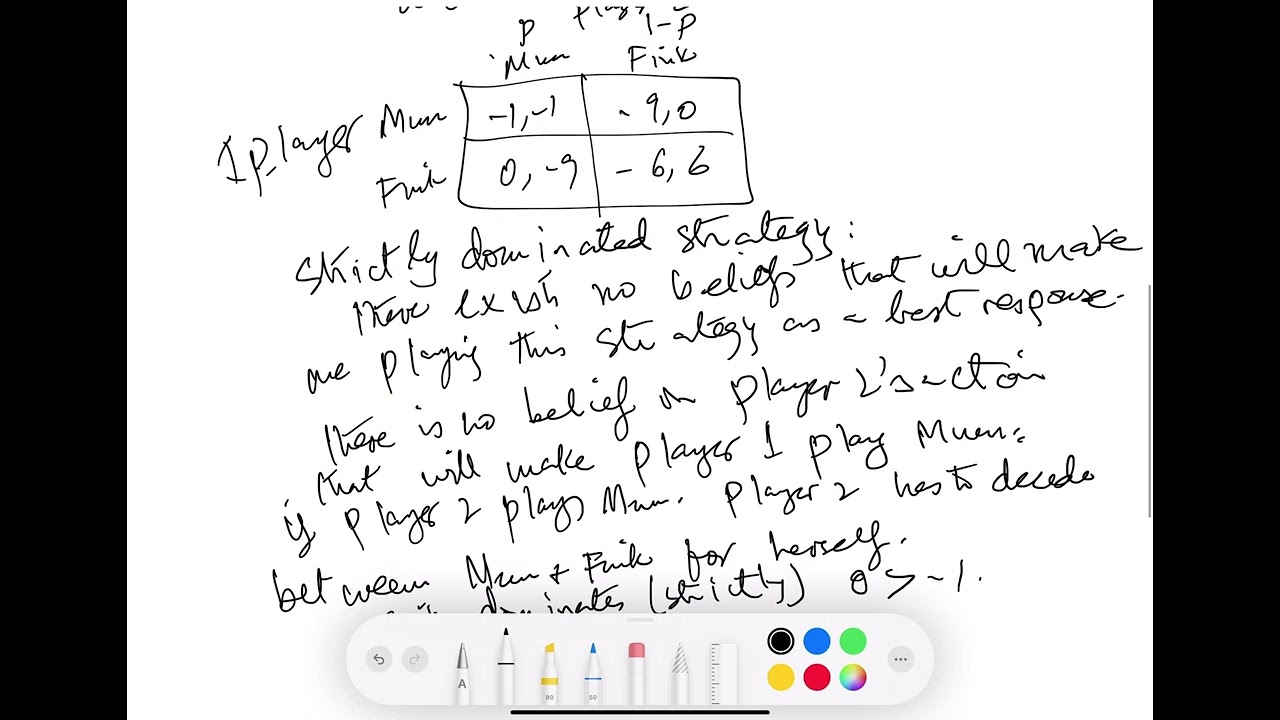 plays
p 1-p
Mum Fink
1 player Mum -1,-1 -9,0
Fink 0,-9 -6,6
strictly dominated strategy:
there exists no beliefs that will make
me playing this strategy as a best response.
there is no belief on player 2's action
that will make player 1 play Mum.
if player 2 plays Mum. player 2 has to decede
between Mum & Fink for herself.
dominates (strictly) 0 > -1.
A
80
50